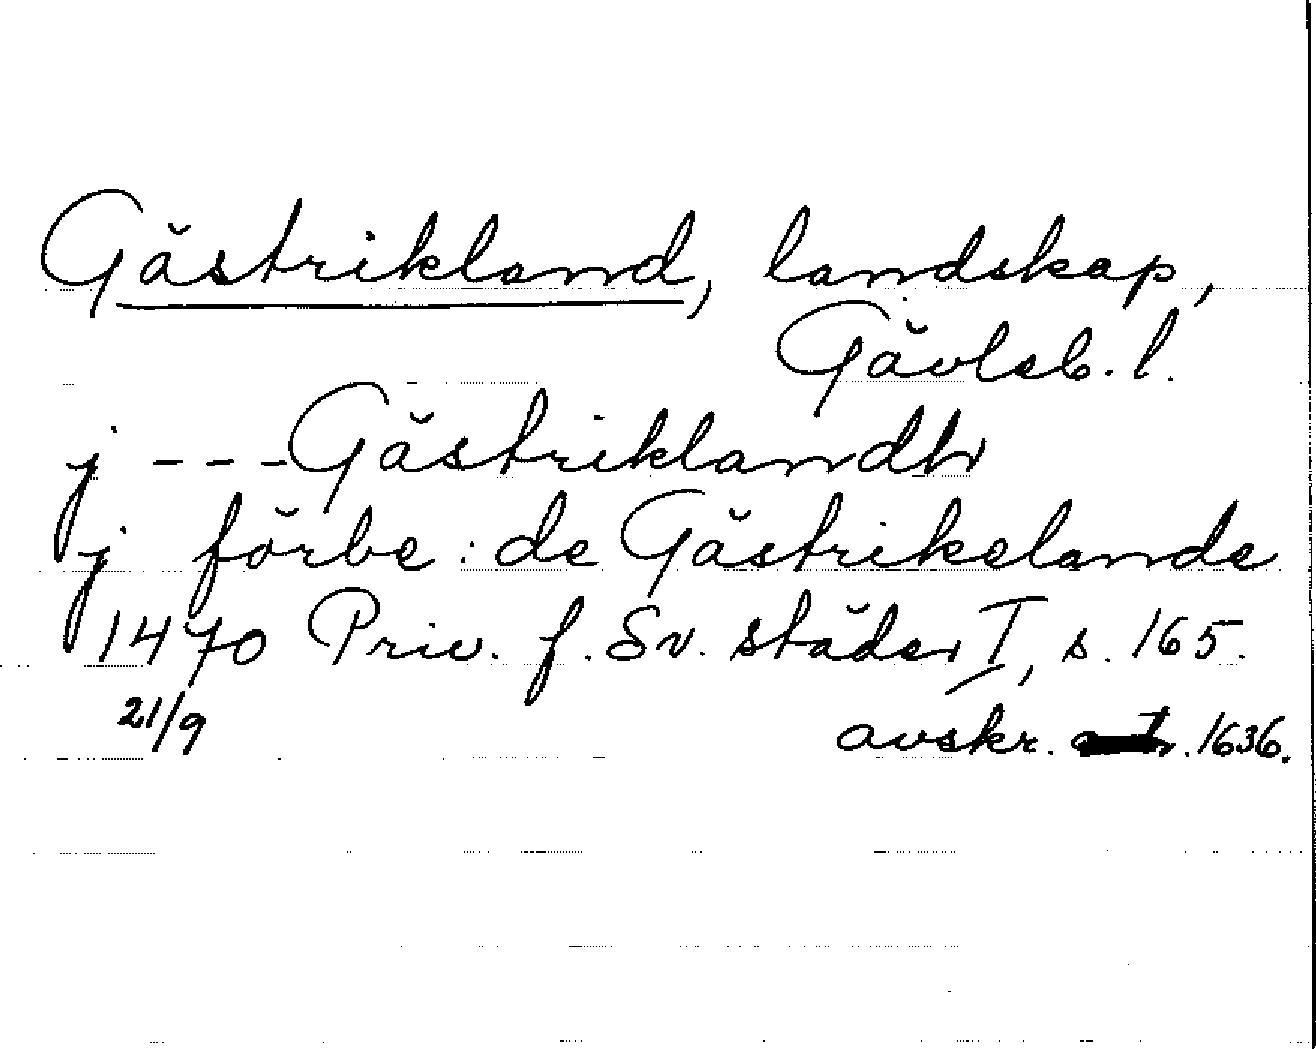 Gästrikland, landskap,
Gävleb. l.
j --- Gästriklandh
j förbe: de Gästrikelande
1470 Priv. f. Sv. städer I, s. 165.
21/9 avskr. 1636.